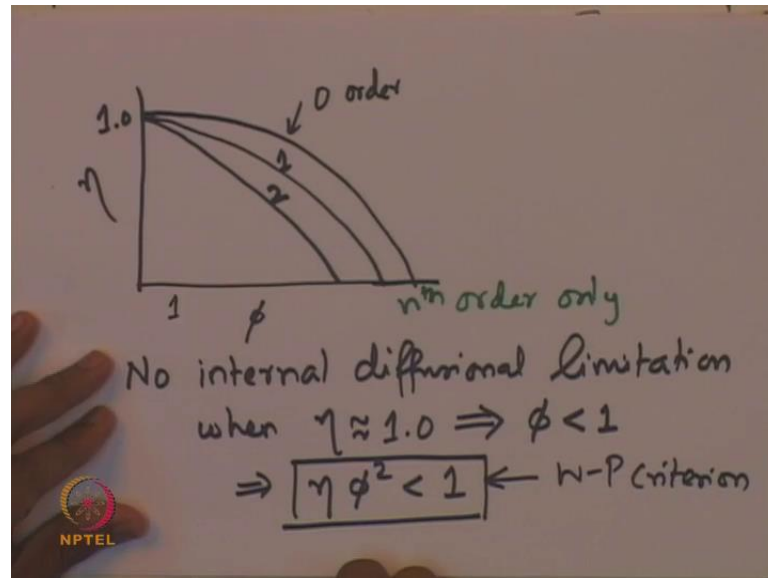 0 order
1.0
1
2
η
1 φ
nth order only
No internal diffusional limitation
when η ≈ 1.0 ⇒ φ < 1
⇒ η φ² < 1 ← W-P Criterion
NPTEL